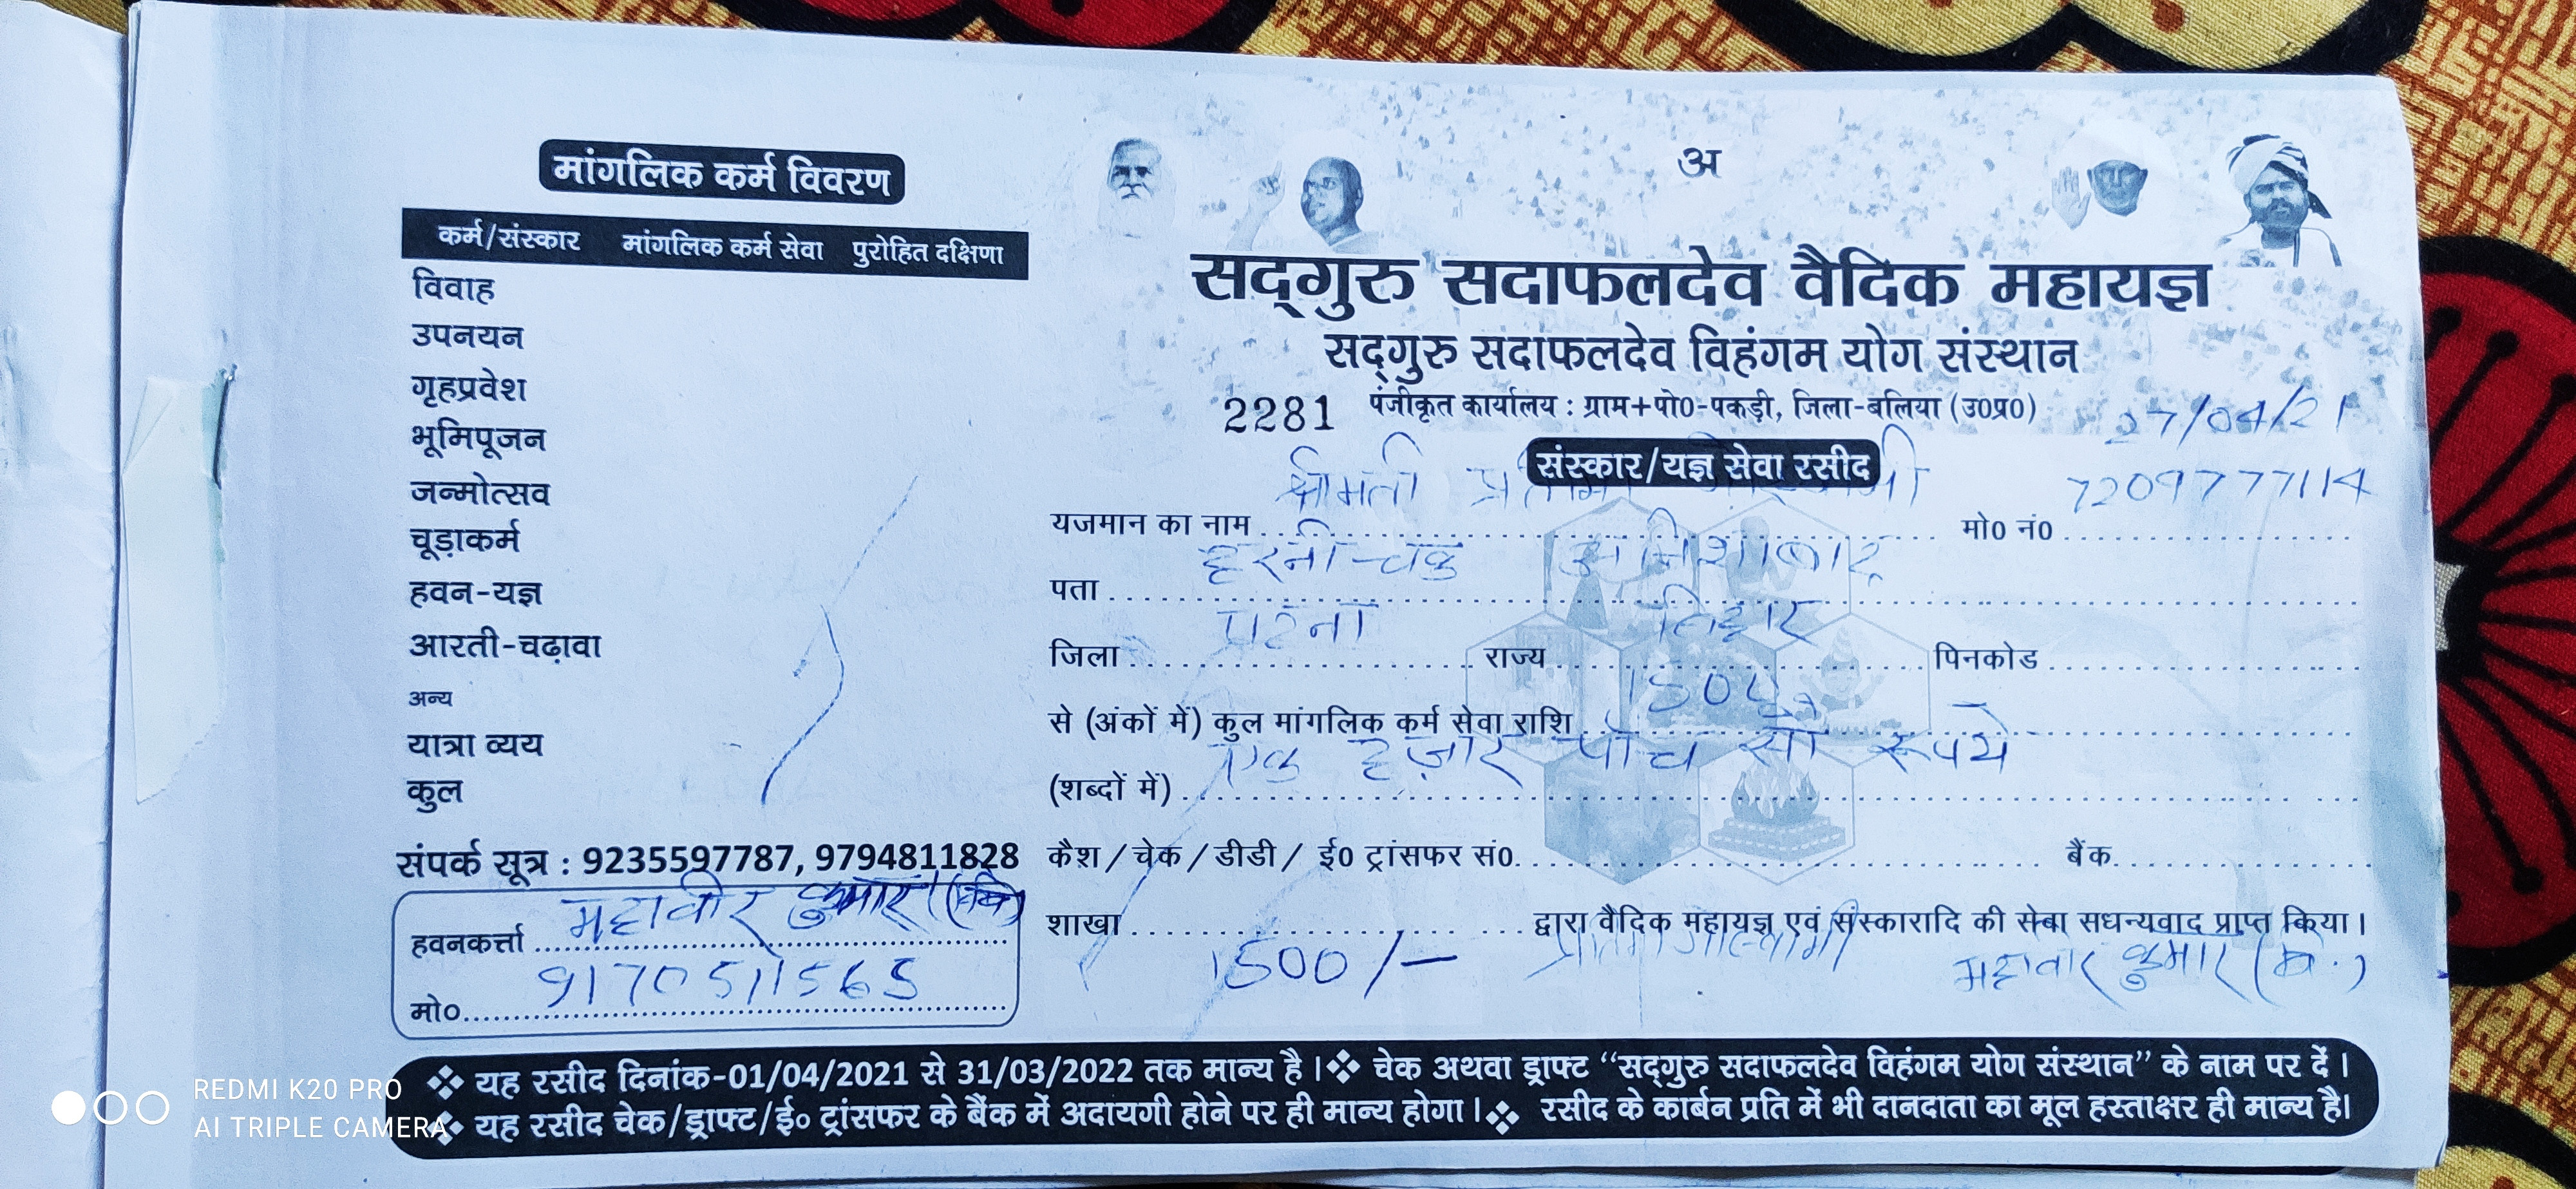 मांगलिक कर्म विवरण
कर्म/संस्कार मांगलिक कर्म सेवा पुरोहित दक्षिणा
विवाह
उपनयन
गृहप्रवेश
भूमिपूजन
जन्मोत्सव
चूड़ाकर्म
हवन-यज्ञ
आरती-चढ़ावा
अन्य
यात्रा व्यय
कुल
संपर्क सूत्र : 9235597787, 9794811828
हवनकर्त्ता महावीर कुमार
मो० 9170511565
अ
सद्गुरु सदाफलदेव वैदिक महायज्ञ
सद्गुरु सदाफलदेव विहंगम योग संस्थान
2281 पंजीकृत कार्यालय : ग्राम+पो0-पकड़ी, जिला-बलिया (उ0प्र0) 27/04/21
संस्कार/यज्ञ सेवा रसीद
यजमान का नाम श्रीमती मो0 नं0 7209777114
पता हरनी-चक अनिशाबाद
जिला पटना राज्य बिहार पिनकोड
से (अंकों में) कुल मांगलिक कर्म सेवा राशि 1500
(शब्दों में) एक हज़ार पाँच सौ रूपये
कैश / चेक / डीडी / ई0 ट्रांसफर सं0. बैंक
शाखा द्वारा वैदिक महायज्ञ एवं संस्कारादि की सेवा सधन्यवाद प्राप्त किया।
1500/- गोस्वामी महावीर कुमार
❖ यह रसीद दिनांक-01/04/2021 से 31/03/2022 तक मान्य है। ❖ चेक अथवा ड्राफ्ट “सद्गुरु सदाफलदेव विहंगम योग संस्थान” के नाम पर दें।
❖ यह रसीद चेक/ड्राफ्ट/ई० ट्रांसफर के बैंक में अदायगी होने पर ही मान्य होगा। ❖ रसीद के कार्बन प्रति में भी दानदाता का मूल हस्ताक्षर ही मान्य है।
REDMI K20 PRO
AI TRIPLE CAMERA